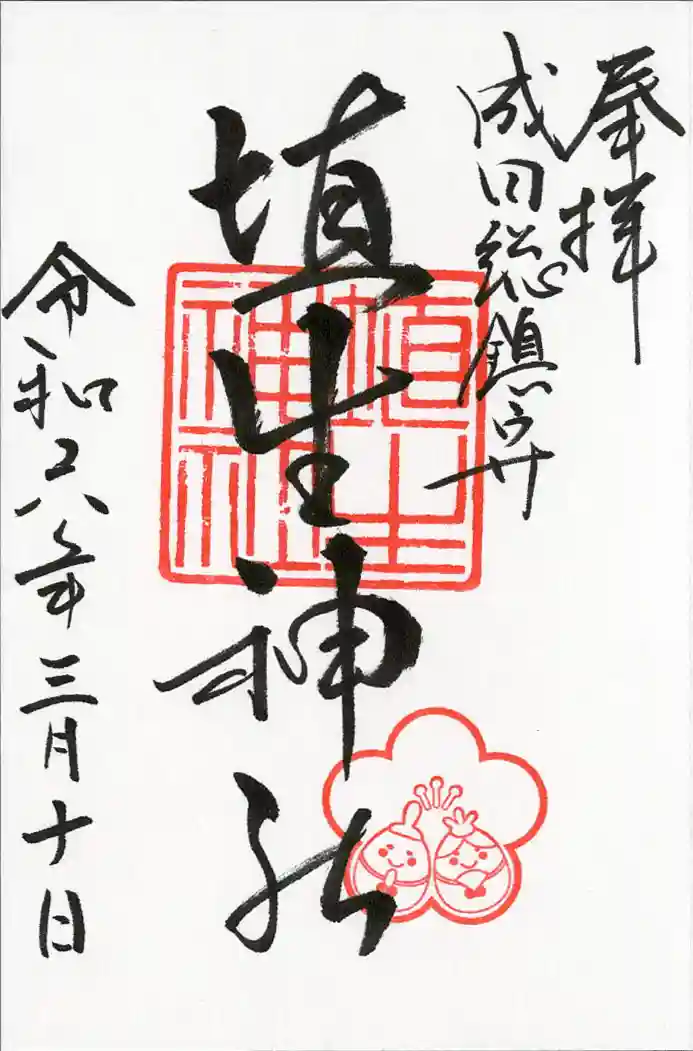 奉拝
成田総鎮守
埴生神社
令和六年三月十日
埴生
神社